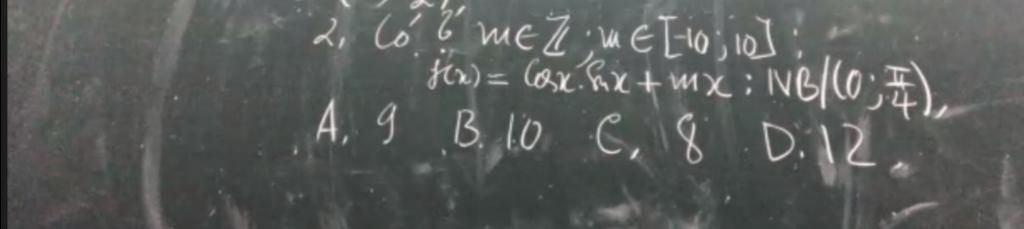 2, Có b' m∈Z; m∈[-10;10]:
f(x) = Cosx.Sinx + mx : NB/(0; π/4),
A, 9 B. 10 C, 8 D. 12.